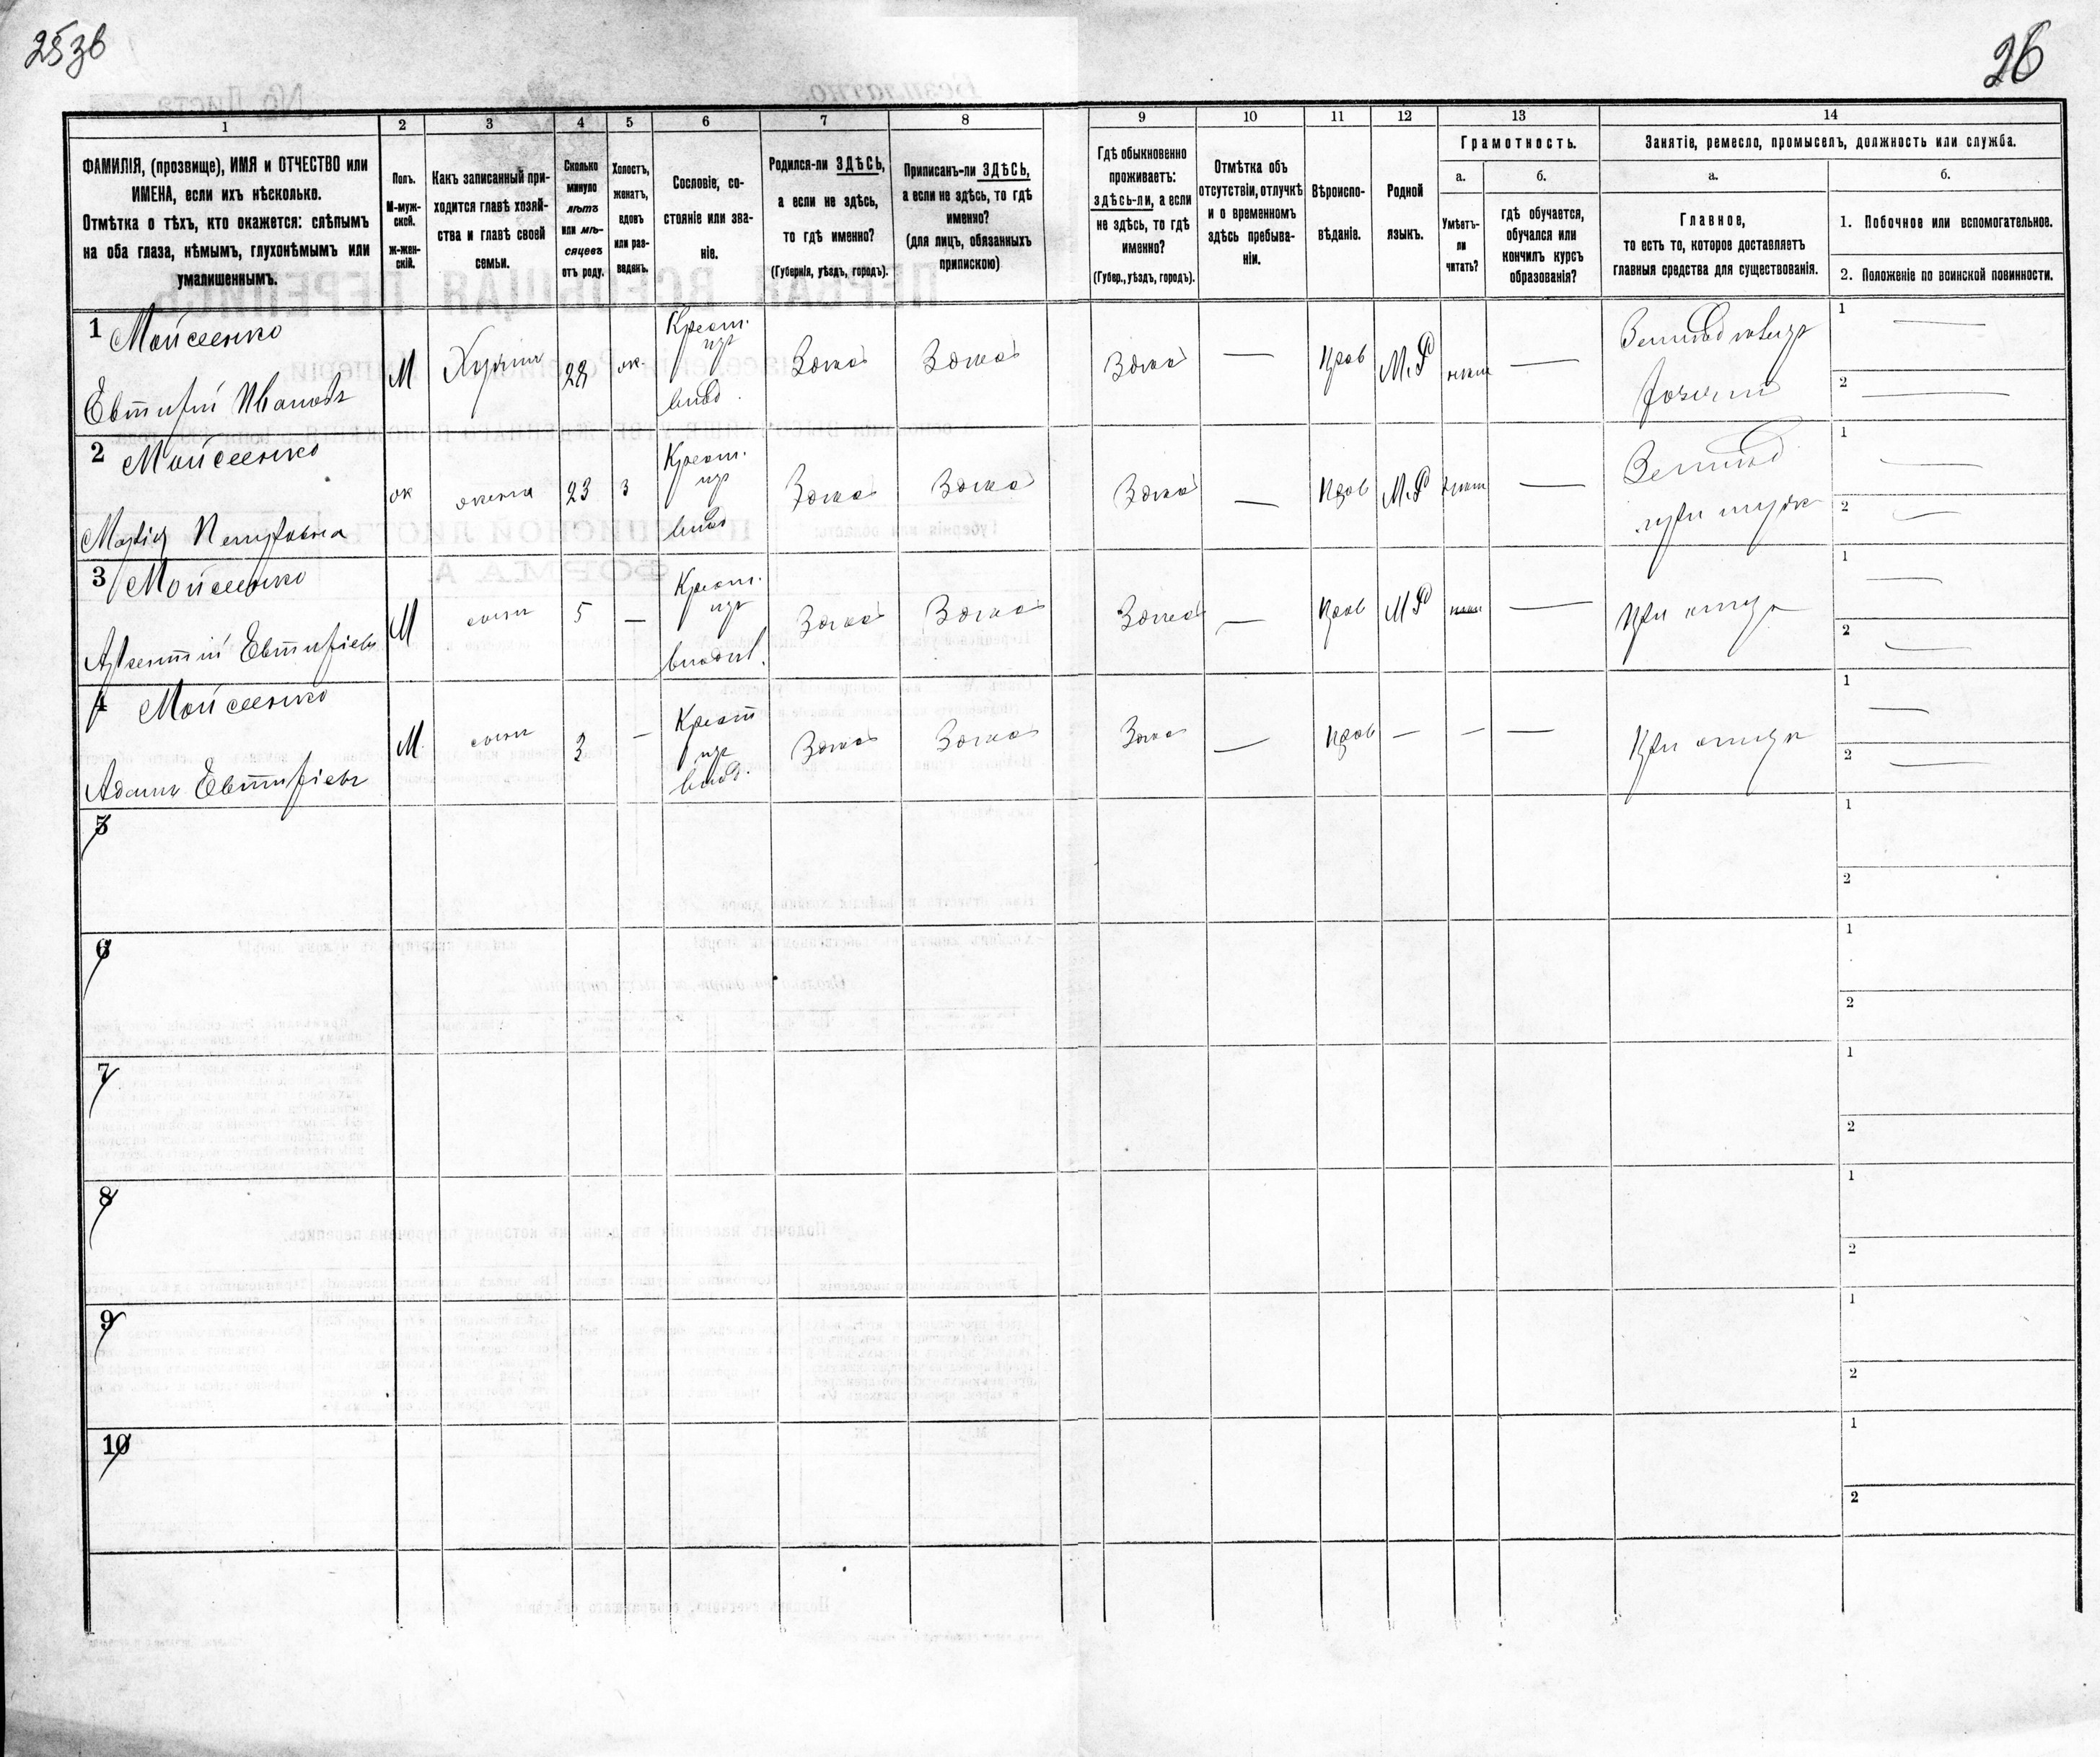 25 зв
26
1
2
3
4
5
6
7
8
9
10
11
12
13
14
ФАМИЛІЯ, (прозвище), ИМЯ и ОТЧЕСТВО или
ИМЕНА, если ихъ нѣсколько.
Отмѣтка о тѣхъ, кто окажется: слѣпымъ
на оба глаза, нѣмымъ, глухонѣмымъ или
умалишеннымъ.
Полъ.
М-муж-
ской.
ж-жен-
скій.
Какъ записанный при-
ходится главѣ хозяй-
ства и главѣ своей
семьи.
Сколько
минуло
лѣтъ
или мѣ-
сяцевъ
отъ роду.
Холостъ,
женатъ,
вдовъ
или раз-
веденъ.
Сословіе, со-
стояніе или зва-
ніе.
Родился-ли ЗДѢСЬ,
а если не здѣсь,
то гдѣ именно?
(Губернія, уѣздъ, городъ).
Приписанъ-ли ЗДѢСЬ,
а если не здѣсь, то гдѣ
именно?
(для лицъ, обязанныхъ
припискою)
Гдѣ обыкновенно
проживаетъ:
здѣсь-ли, а если
не здѣсь, то гдѣ
именно?
(Губер., уѣздъ, городъ).
Отмѣтка объ
отсутствіи, отлучкѣ
и о временномъ
здѣсь пребыва-
ніи.
Вѣроиспо-
вѣданіе.
Родной
языкъ.
Грамотность.
а.
Умѣетъ-
ли
читать?
б.
гдѣ обучается,
обучался или
кончилъ курсъ
образованія?
Занятіе, ремесло, промыселъ, должность или служба.
а.
Главное,
то есть то, которое доставляетъ
главныя средства для существованія.
б.
1. Побочное или вспомогательное.
2. Положеніе по воинской повинности.
1 Мойсеенко
Евтифій Ивановъ
М
28
ж
Крест.
изъ
влад.
Здѣсь
Здѣсь
Здѣсь
—
Прав
М.Р
нѣтъ
—
1 —
2 —
2 Мойсеенко
Марія Петровна
ж
жена
23
з
Крест.
изъ
влад
Здѣсь
Здѣсь
Здѣсь
—
Прав
М.Р
нѣтъ
—
Земляд
при мужѣ
1 —
2 —
3 Мойсеенко
Арсентій Евтифіевъ
М
сынъ
5
—
Крест.
изъ
Здѣсь
Здѣсь
Здѣсь
—
Прав
М Р
—
При отцѣ
1 —
2 —
4 Мойсеенко
Адамъ Евтифіевъ
М.
сынъ
3
—
Крест
изъ
влад.
Здѣсь
Здѣсь
Здѣсь
—
Прав
—
—
—
При отцѣ
1 —
2 —
5
1
2
6
1
2
7
1
2
8
1
2
9
1
2
10
1
2